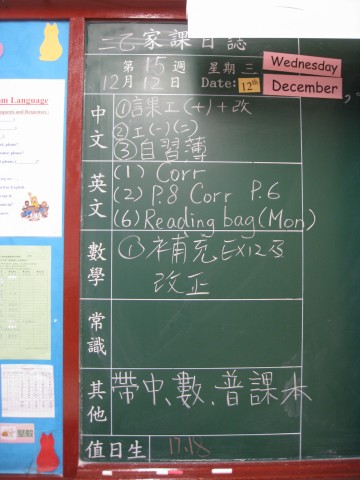 二乙家課日誌
第15週 星期三 Wednesday
12月12日 Date: 12th December,
中文 ①課工(十)+改
②工(一)(二)
③自習簿
英文 (1) Corr
(2) P.8 Corr P.6
(6) Reading bag (Mon)
數學 ①補充EX12及
改正
常識
其他 帶中、數、普課本
值日生 17.18
om Language